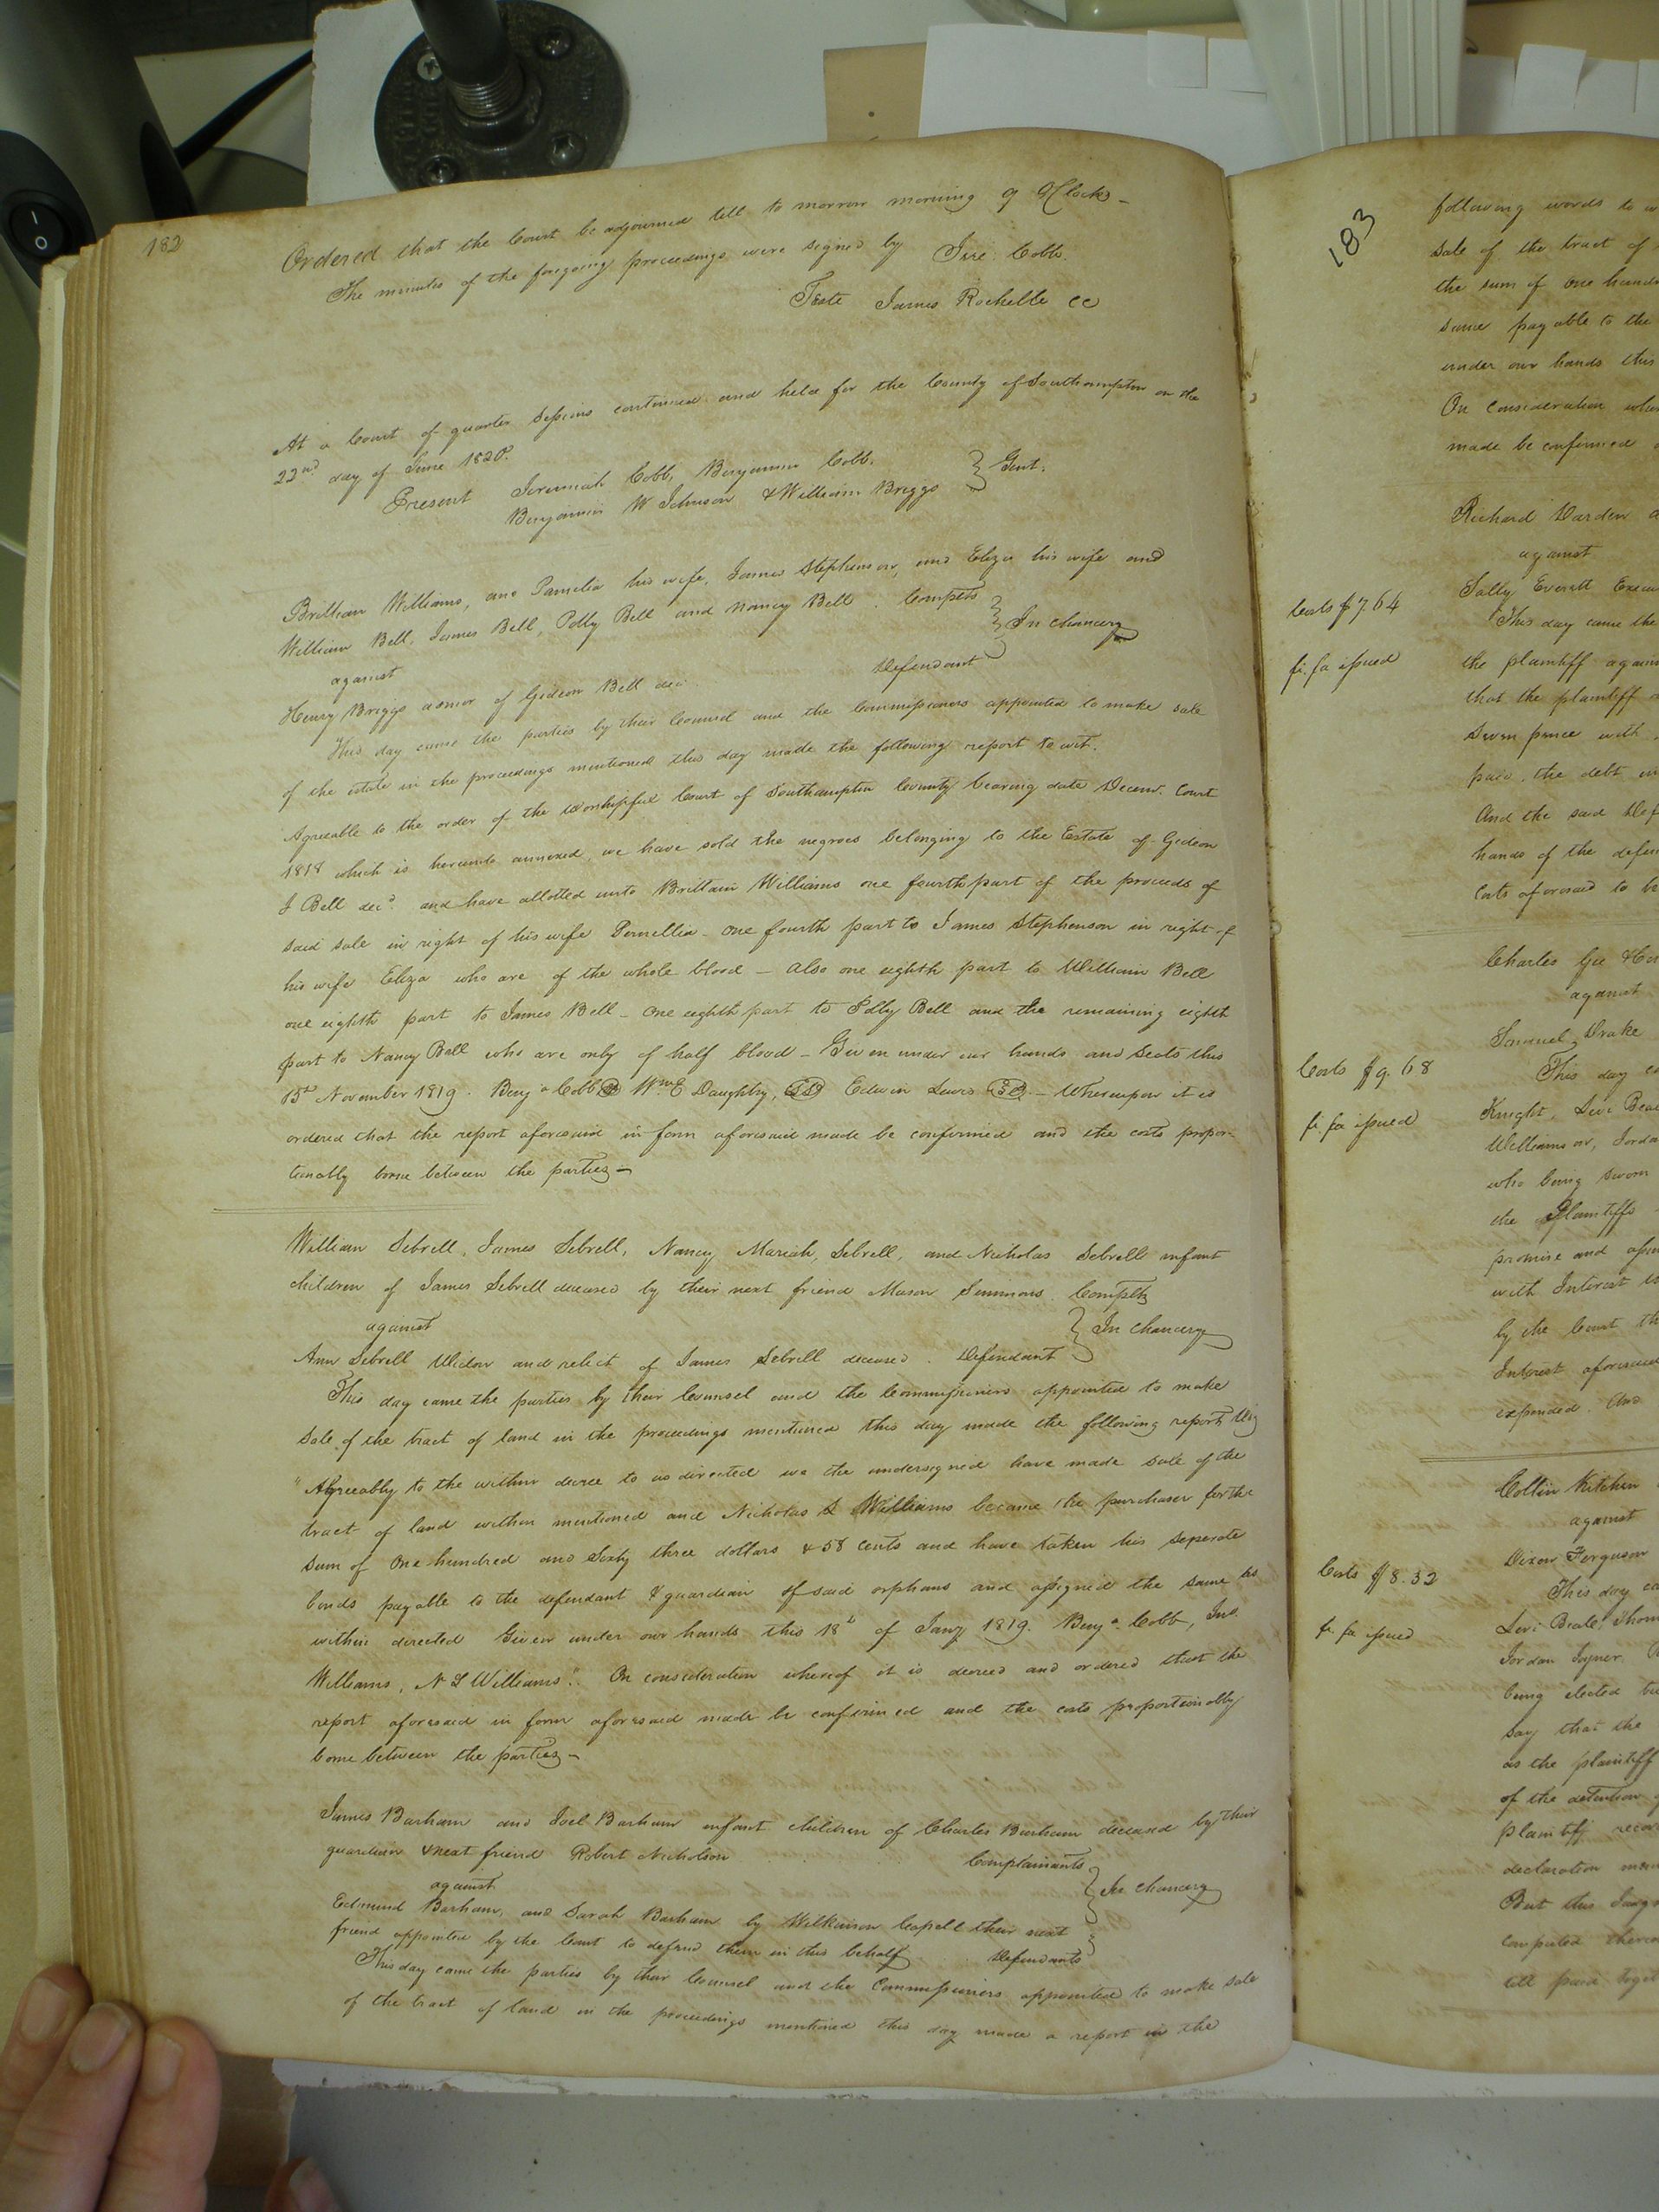 182
Ordered that the Court be adjourned till to morrow morning 9 OClock -
The minutes of the foregoing proceedings were signed by Jere: Cobb.
Teste James Rochelle CC
At a Court of quarter Sessions continued and held for the County of Southampton on the
22nd day of June 1820.
Present Jeremiah Cobb, Benjamin Cobb,
Benjamin W Johnson & William Briggs } Gent:
Brittian Williams, and Pamelia his wife, James Stephenson, and Eliza his wife and
William Bell, James Bell, Polly Bell and Nancy Bell. Complts
against } In chancery
Henry Briggs admor of Gideon Bell dec. Defendant
This day came the parties by their Counsel and the Commissioners appointed to make sale
of the estate in the proceedings mentioned this day made the following report to wit.
Agreeable to the order of the worshipful Court of Southampton County bearing date Decemr. Court
1818 which is hereunto annexed, we have sold the negroes belonging to the Estate of Gideon
J Bell decd. and have allotted unto Brittain Williams one fourth part of the proceeds of
said sale in right of his wife Permellia - one fourth part to James Stephenson in right of
his wife Eliza who are of the whole blood - also one eighth part to William Bell
one eighth part to James Bell - one eighth part to Polly Bell and the remaining eighth
part to Nancy Bell who are only of half blood - Given under our hands and seals this
November 1819. Benja Cobb Wm. E Daughtry, Edwin Lewis - Whereupon it is
ordered that the report aforesaid in form aforesaid made be confirmed and the costs propor-
tionally borne between the parties -
William Sebrell, James Sebrell, Nancy Mariah, Sebrell, and Nicholas Sebrell infant
children of James Sebrell deceased by their next friend Mason Simmons. Complts
against } In chancery
Ann Sebrell Widow and relict of James Sebrell deceased. Defendant
This day came the parties by their Counsel and the Commissioners appointed to make
Sale of the tract of land in the proceedings mentioned this day made the following report Viz
"Agreeably to the within decree to us directed we the undersigned have made sale of the
tract of land within mentioned and Nicholas L Williams became the purchaser for the
sum of One hundred and Sixty three dollars & 58 cents and have taken his seperate
bonds payable to the defendant & guardian of said orphans and assigned the same as
within directed Given under our hands this 18th of Jany 1819. Benja. Cobb, Jno.
Williams, N L Williams". On consideration whereof it is decreed and ordered that the
report aforesaid in form aforesaid made be confirmed and the costs proportionably
borne between the parties -
James Barham and Joel Barham infant children of Charles Barham deceased by their
guardian & next friend Robert Nicholson Complainants
against } In chancery
Edmund Barham, and Sarah Barham by Wilkinson Capell their next
friend appointed by the Court to defend them in this behalf Defendants
This day came the parties by their Counsel and the Commissioners appointed to make sale
of the tract of land in the proceedings mentioned this day made a report in the
183
following words to
sale of the tract of
the sum of one
same payable to the
under our hands this
On consideration
made be confirmed
Richard Darden
against
Sally Everett
Costs $7.64
This day came the
fi. fa issued
the plaintiff
that the plaintiff
Seven pence with
paid, the debt
And the said
hands of the
Costs aforesaid to
Charles Gee
against
Samuel Drake
Costs $9.68
This day
fi. fa issued
Knight, Levi
Williamson,
who being sworn
the Plaintiffs
promise and
with Interest
by the Court
Interest aforesaid
expended. And
Collin Kitchen
against
Dixon Ferguson
Costs $8.32
This day
fi. fa issued
Levi Beale,
Jordan Joyner,
being elected
say that the
as the plaintiff
of the detention
plaintiff
declaration
But this
computed
till paid